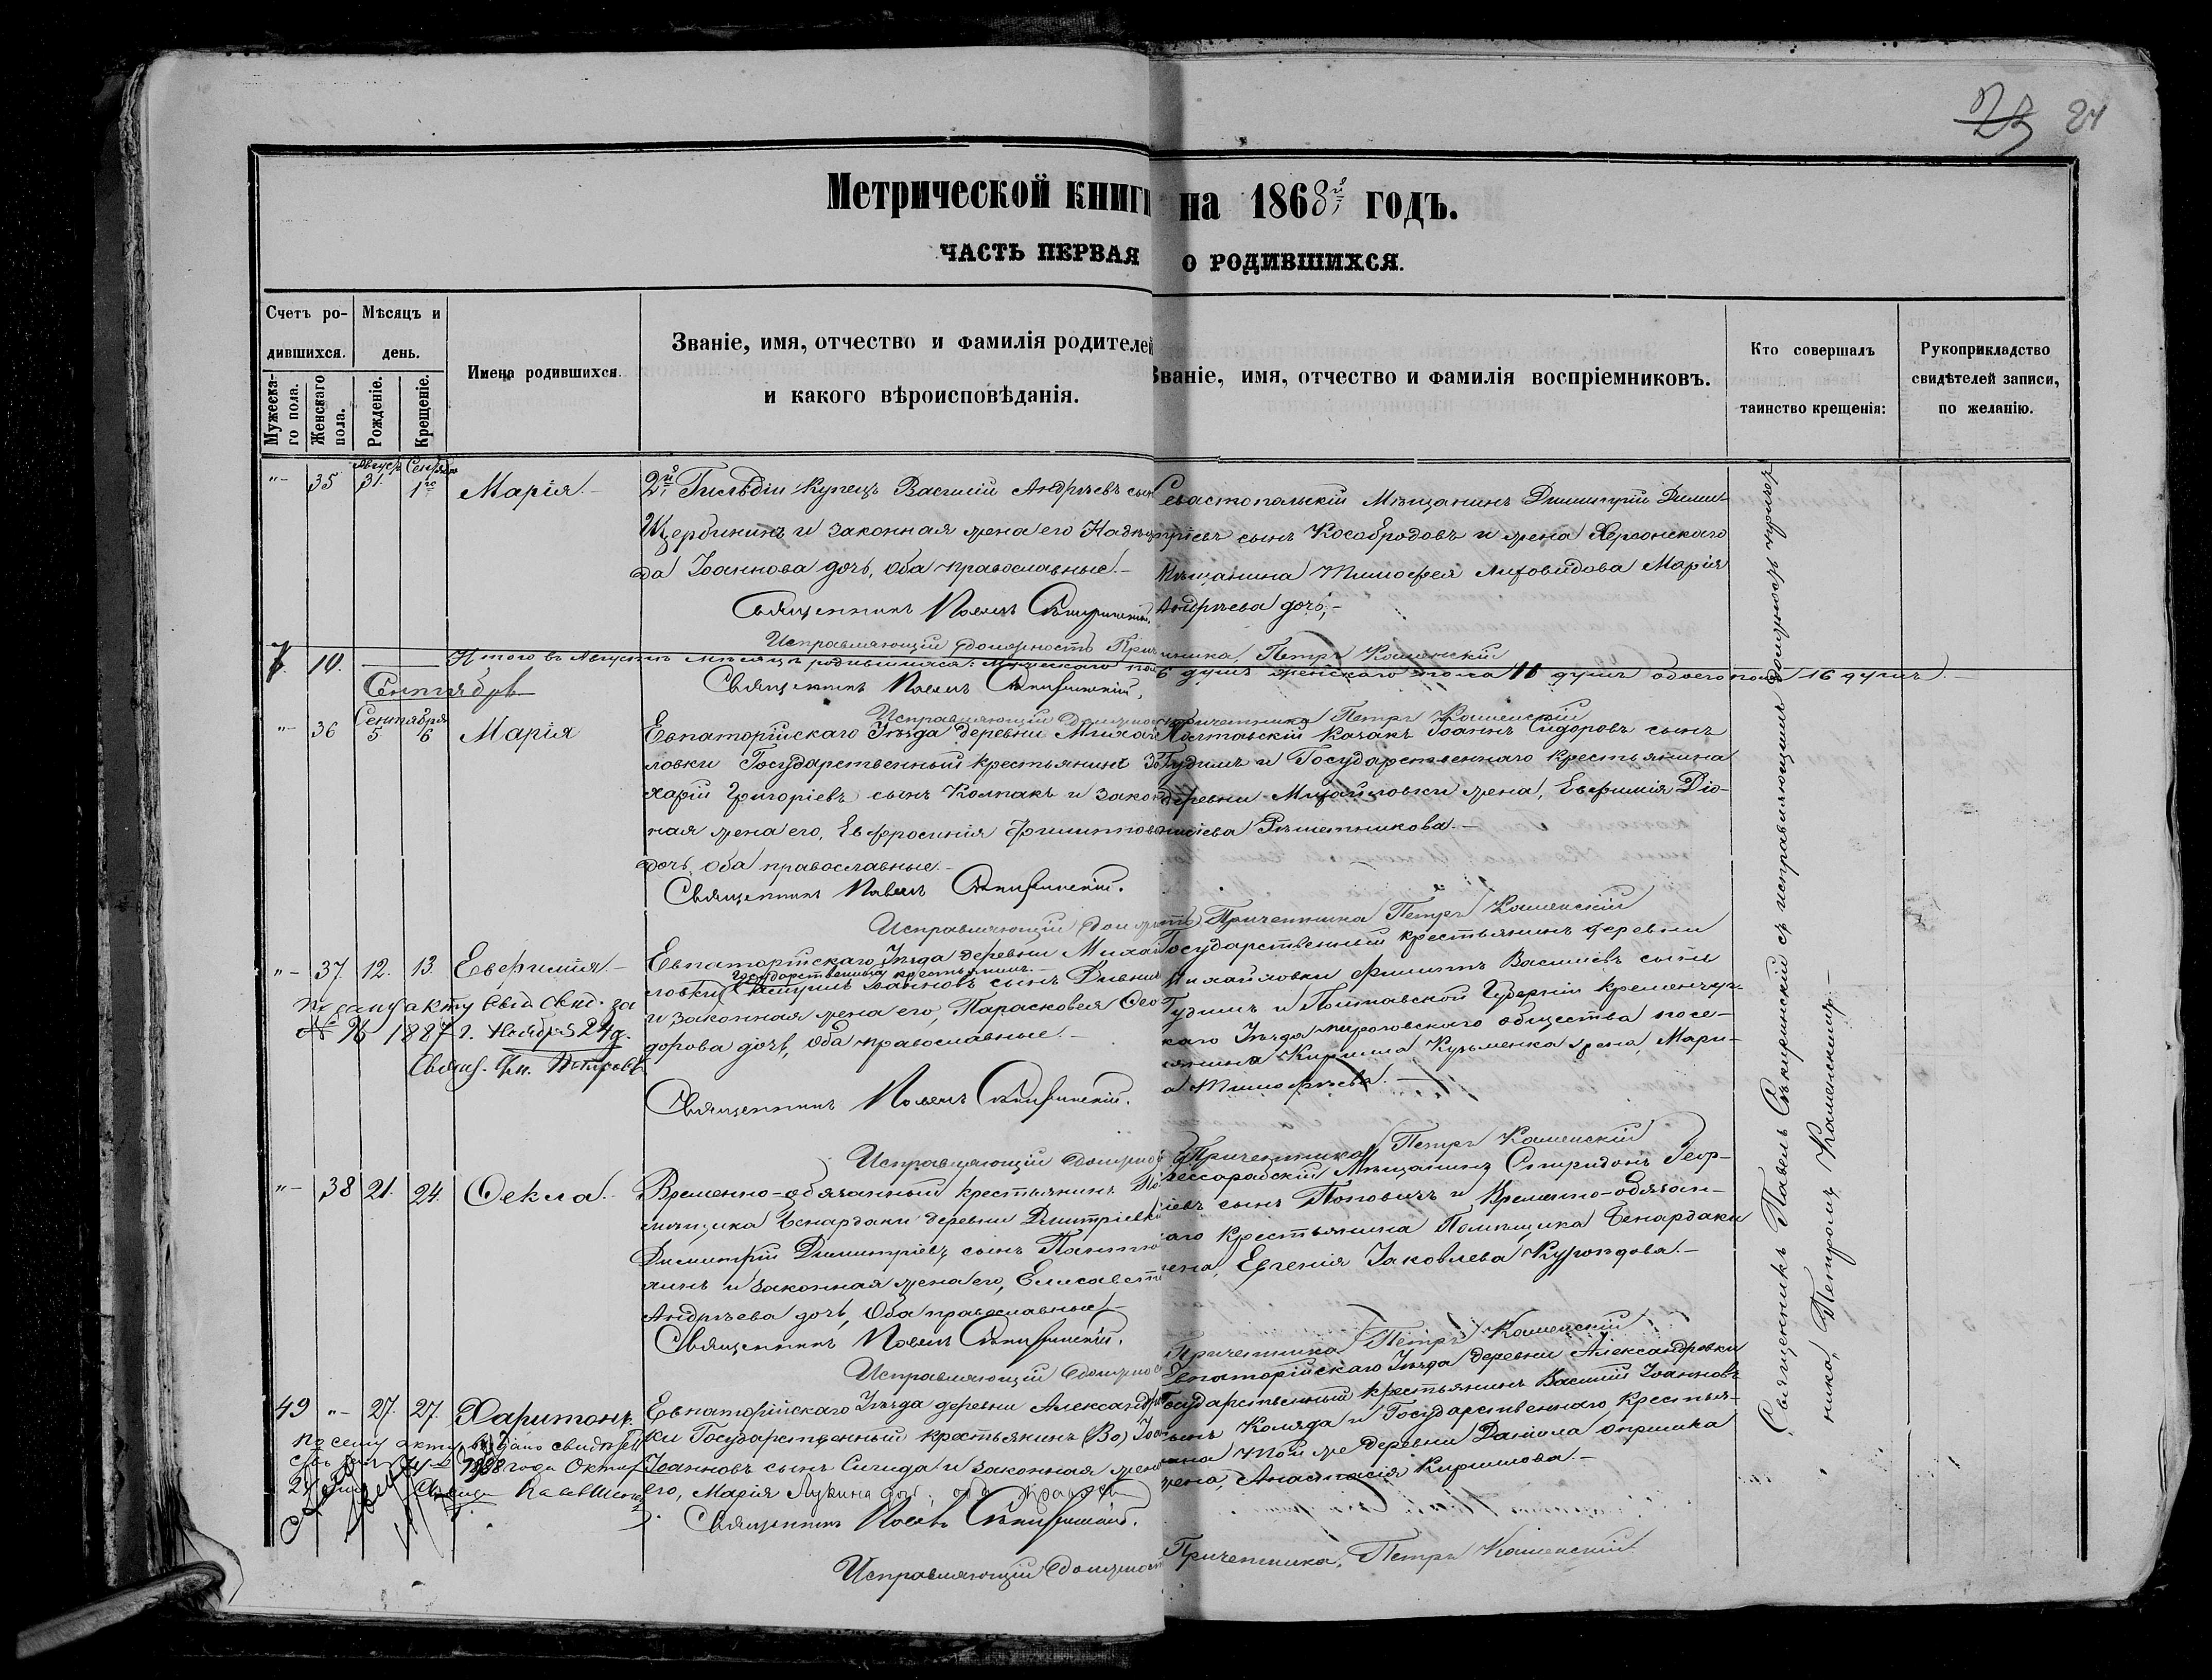 23 24
Метрической книги на 1868й годъ.
ЧАСТЬ ПЕРВАЯ О РОДИВШИХСЯ.
Счетъ родившихся.
Мужескаго пола.
Женскаго пола.
Мѣсяцъ и день.
Рожденіе.
Крещеніе.
Имена родившихся.
Званіе, имя, отчество и фамилія родителей
и какого вѣроисповѣданія.
Званіе, имя, отчество и фамилія воспріемниковъ.
Кто совершалъ
таинство крещенія:
Рукоприкладство
свидѣтелей записи,
по желанію.
"- 35 Август 31. Сентября 1го Марія.-
2й Гильдіи Купецъ Василій Андрѣевъ сын
Щербининъ и законная жена его Надѣж
да Іоаннова дочь, оба православные.-
Священникъ Павелъ
Севастопольскій Мѣщанинъ Димитрій Дими
тріевъ сынъ Кособродовъ и жена Херсонскаго
Мѣщанина Тимофея Лиховидова Марія
Андрѣева дочь;-
Исправляющій должность Причетника, Петръ Каменскій
10. Итого въ Августѣ мѣсяцѣ родившихся: Мужескаго пола 6 душъ женскаго пола 10 душъ обоего пола 16 душъ.-
Сентябрь
Священникъ Павелъ
Исправляющій Должность Причетника Петръ Каменскій
"- 36 Сентября 5 6 Марія
Евпаторійскаго Уѣзда деревни Михай
ловки Государственный крестьянинъ За
харій Григоріевъ сынъ Колпакъ и закон
ная жена его, Евфросинія Филиппова
дочь, оба православные.-
Священникъ Павелъ
Полтавскій Казакъ Іоаннъ Сидоровъ сынъ
Гудимъ и Государственнаго Крестьянина
деревни Михайловки жена, Евфимія Діо-
нисіева Рѣшетникова.-
Исправляющій Должность Причетника Петръ Каменскій
"- 37. 12. 13. Евфимія.-
Евпаторійскаго Уѣзда деревни Михай
ловки Государственный крестьянинъ Самуилъ Іоанновъ сынъ Дивний
и законная жена его, Параскевія Ѳео
дорова дочь, оба православные.-
Священникъ Павелъ
Государственный крестьянинъ деревни
Михайловки Филиппъ Василіевъ сынъ
Гудимъ и Полтавской Губерніи Кременчуг
каго Уѣзда общества посе-
лянина Кирилла Кузьменка жена, Мари-
а Тимофѣева.-
1887 г. Ноября 24 д.
Исправляющій Должность Причетника Петръ Каменскій
"- 38 21. 24. Ѳекла.-
Временно-обязанный крестьянинъ По
мѣщика Бенардаки деревни Дмитріевки
Димитрій Димитріевъ сынъ
и законная жена его, Елисавета
Андрѣева дочь, Оба православные.-
Священникъ Павелъ
Бессарабскій Мѣщанинъ Спиридонъ Геор-
гіевъ сынъ Поповичъ и Временно-обязан-
наго Крестьянина Помѣщика Бенардаки
жена, Евгенія Іаковлева
Исправляющій Должность Причетника Петръ Каменскій
49 "- 27. 27. Харитонъ.
Евпаторійскаго Уѣзда деревни Александров
ки Государственный крестьянинъ
Іоанновъ сынъ Сичида и законная жена
его, Марія Лукина
Священникъ Павелъ
Евпаторійскаго Уѣзда деревни Александровки
Государственный крестьянинъ Василій Іоанновъ
сынъ Коляда и Государственнаго Крестья-
нина той же деревни Даніила
жена, Анастасія Кириллова.-
Исправляющій Должность Причетника, Петръ Каменскій
Священникъ Павелъ Сѣкиринскій съ исправляющимъ должность причет
ника, Петромъ Каменскимъ.-